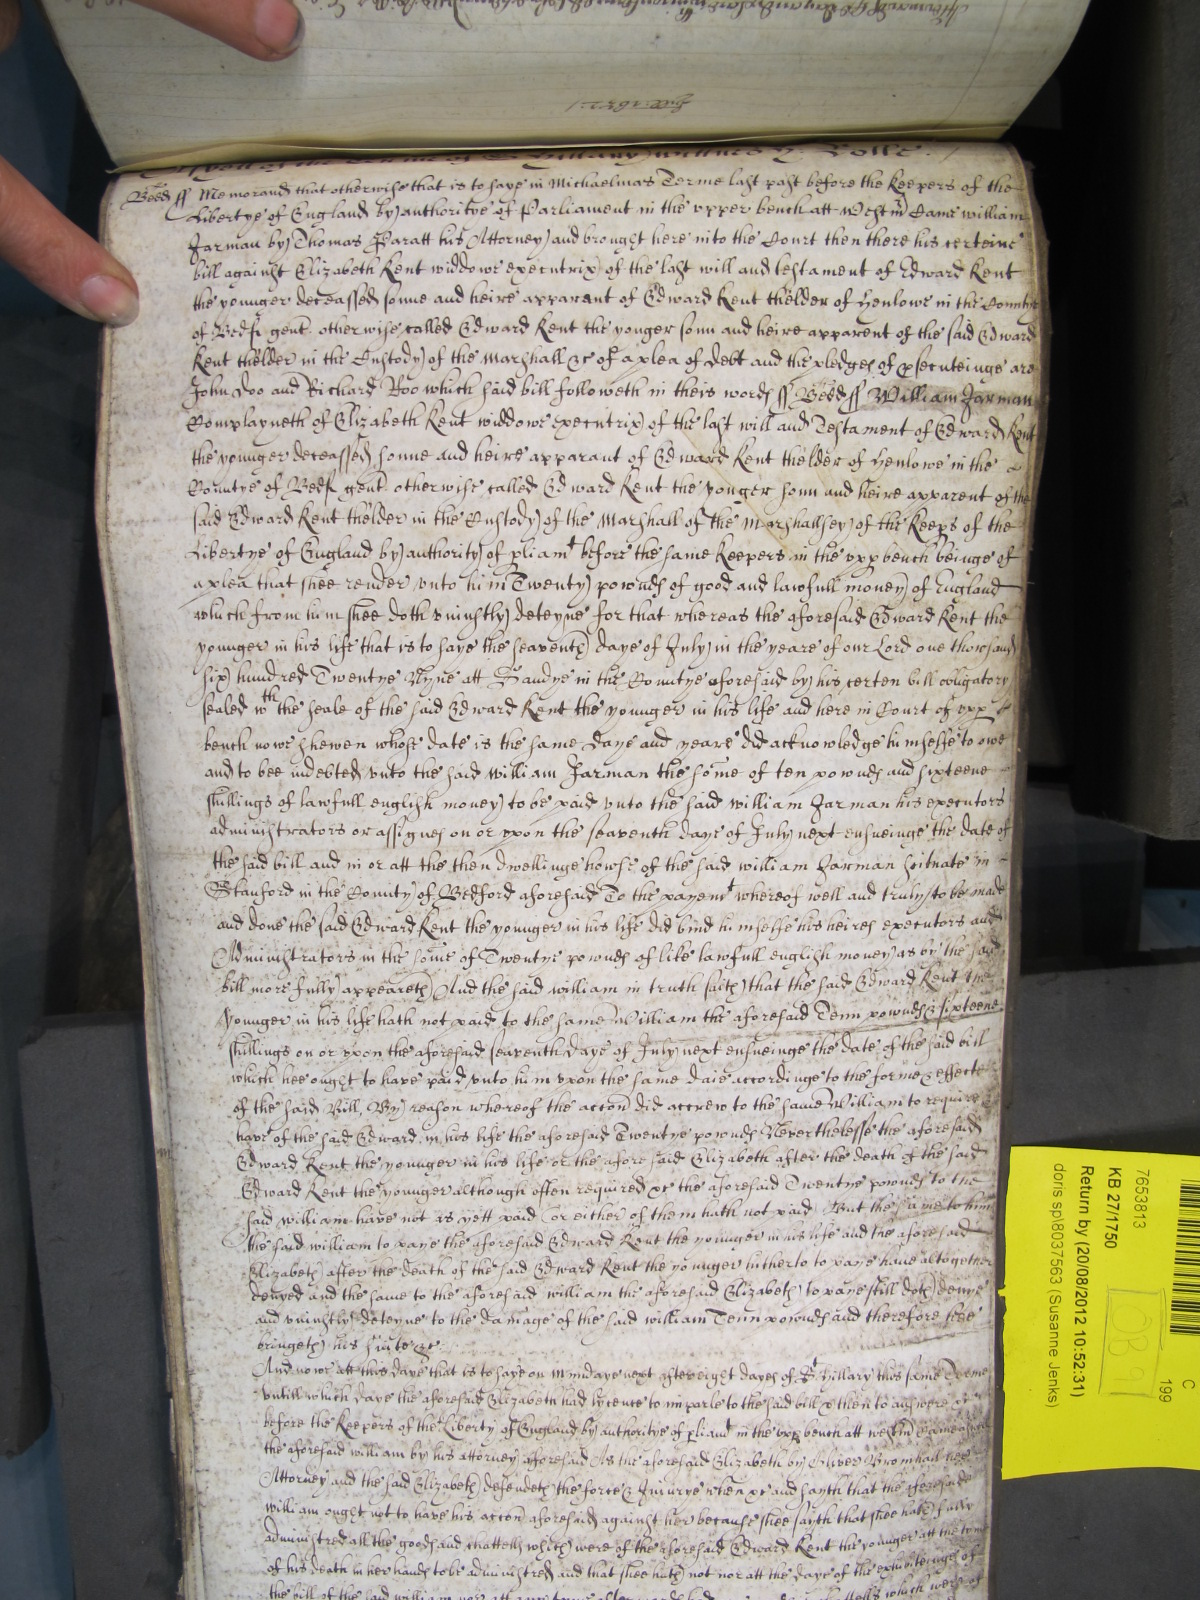 Hill: 1652
As yett of the Terme of St Hillary wittnes H: Rolle.
Bedd ss Memorand that otherwise that is to saye in Michaelmas Terme last past before the Keepers of the
Libertye of England by authoritye of Parliament in the upper bench att Westm Came william
Jarman by Thomas Paratt his Attorney and brought here into the Court then there his certeine
bill against Elizabeth Kent widdowe executrix of the last will and testament of Edward Kent
the younger deceassed sonne and heire apparant of Edward Kent thelder of Henlowe in the Countye
of Bedf gent. otherwise called Edward Kent the yonger sonn and heire apparent of the said Edward
Kent thelder in the Custody of the Marshall &c of a plea of debt and the pledges of psecuteinge are
John Doo and Richard Roo which said bill followeth in theis words ss Bedd ss William Jarman
Complayneth of Elizabeth Kent widdowe executrix of the last will and Testament of Edward Kent
the younger deceassed sonne and heire apparant of Edward Kent thelder of Henlowe in the
Countye of Bedf gent. otherwise called Edward Kent the yonger sonn and heire apparent of the
said Edward Kent thelder in the Custody of the Marshall of the Marshallsey of the Keeps of the
Libertye of England by authority of pliamt before the same Keepers in the upp bench beinge of
a plea that shee render unto him Twenty pownds of good and lawfull money of England
which from him shee doth uniustly deteyne for that whereas the aforesaid Edward Kent the
younger in his life that is to saye the seaventh daye of July in the yeare of our Lord one thowsand
six hundred Twentye Nyne att Sandye in the Countye aforesaid by his certen bill obligatory
sealed wth the seale of the said Edward Kent the younger in his life and here in Court of upp
bench nowe shewen whose date is the same daye and yeare did acknowledge himselfe to owe
and to bee indebted unto the said william Jarman the some of ten pownds and sixteene
shillings of lawfull english money to be paid unto the said william Jarman his executors
administrators or assignes on or upon the seaventh daye of July next ensueinge the date of
the said bill and in or att the then dwellinge howse of the said william Jarman scituate in
Stanford in the County of Bedford aforesaid To the paymt whereof well and truly to be made
and done the said Edward Kent the younger in his life did bind himselfe his heires executors and
Administrators in the some of Twentye pownds of like lawfull english money as by the said
bill more fully appeareth And the said william in truth saith that the said Edward Kent the
younger in his life hath not paid to the same William the aforesaid Tenn pownds & sixteene
shillings on or upon the aforesaid seaventh daye of July next ensueinge the date of the said bill
which hee ought to have paid unto him upon the same daie accordinge to the forme & effecte
of the said Bill, By reason whereof the accon did accrew to the same William to require &
have of the said Edward in his life the aforesaid Twentye pownds Neverthelesse the aforesaid
Edward Kent the younger in his life or the aforesaid Elizabeth after the death of the said
Edward Kent the younger although often required &c the aforesaid Twentye pownds to the
said william have not as yett paid or either of them hath not paid But the same to him
the said william to paye the aforesaid Edward Kent the younger in his life and the aforesaid
Elizabeth after the death of the said Edward Kent the younger hitherto to paye have altogether
denyed and the same to the aforesaid william the aforesaid Elizabeth to paye still doth denye
and uniustly deteyne to the damage of the said william Tenn pownds and therefore hee
bringeth his suite &c
And nowe att this daye that is to saye on Mundaye next after eight dayes of St Hillary this same Terme
untill which daye the aforesaid Elizabeth had lycence to imparle to the said bill & then to answere &c
before the Keepers of the Liberty of England by authoritye of pliamt in the upp bench att westm came aswell
the aforesaid william by his attorney aforesaid As the aforesaid Elizabeth by Oliver Bromhall her
Attorney and the said Elizabeth defendeth the force & Iniurye when &c and sayth that the aforesaid
william ought not to have his accon aforesaid against her because shee sayth that shee hath fully
administred all the goods and chattells which were of the aforesaid Edward Kent the younger att the tyme
of his death in her hands to be administred and that shee hath not nor att the daye of the exhibiteinge of
the bill of the said william nor att any tyme afterwards had chattells which were of
7653813
KB 27/1750
Return by (20/08/2012 10:52:31)
doris sp\8037563 (Susanne Jenks)
C
199